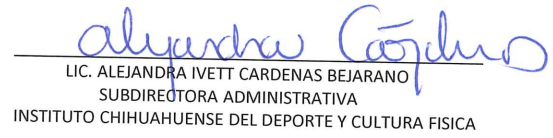 alejandra Cárdenas
LIC. ALEJANDRA IVETT CARDENAS BEJARANO
SUBDIRECTORA ADMINISTRATIVA
INSTITUTO CHIHUAHUENSE DEL DEPORTE Y CULTURA FISICA